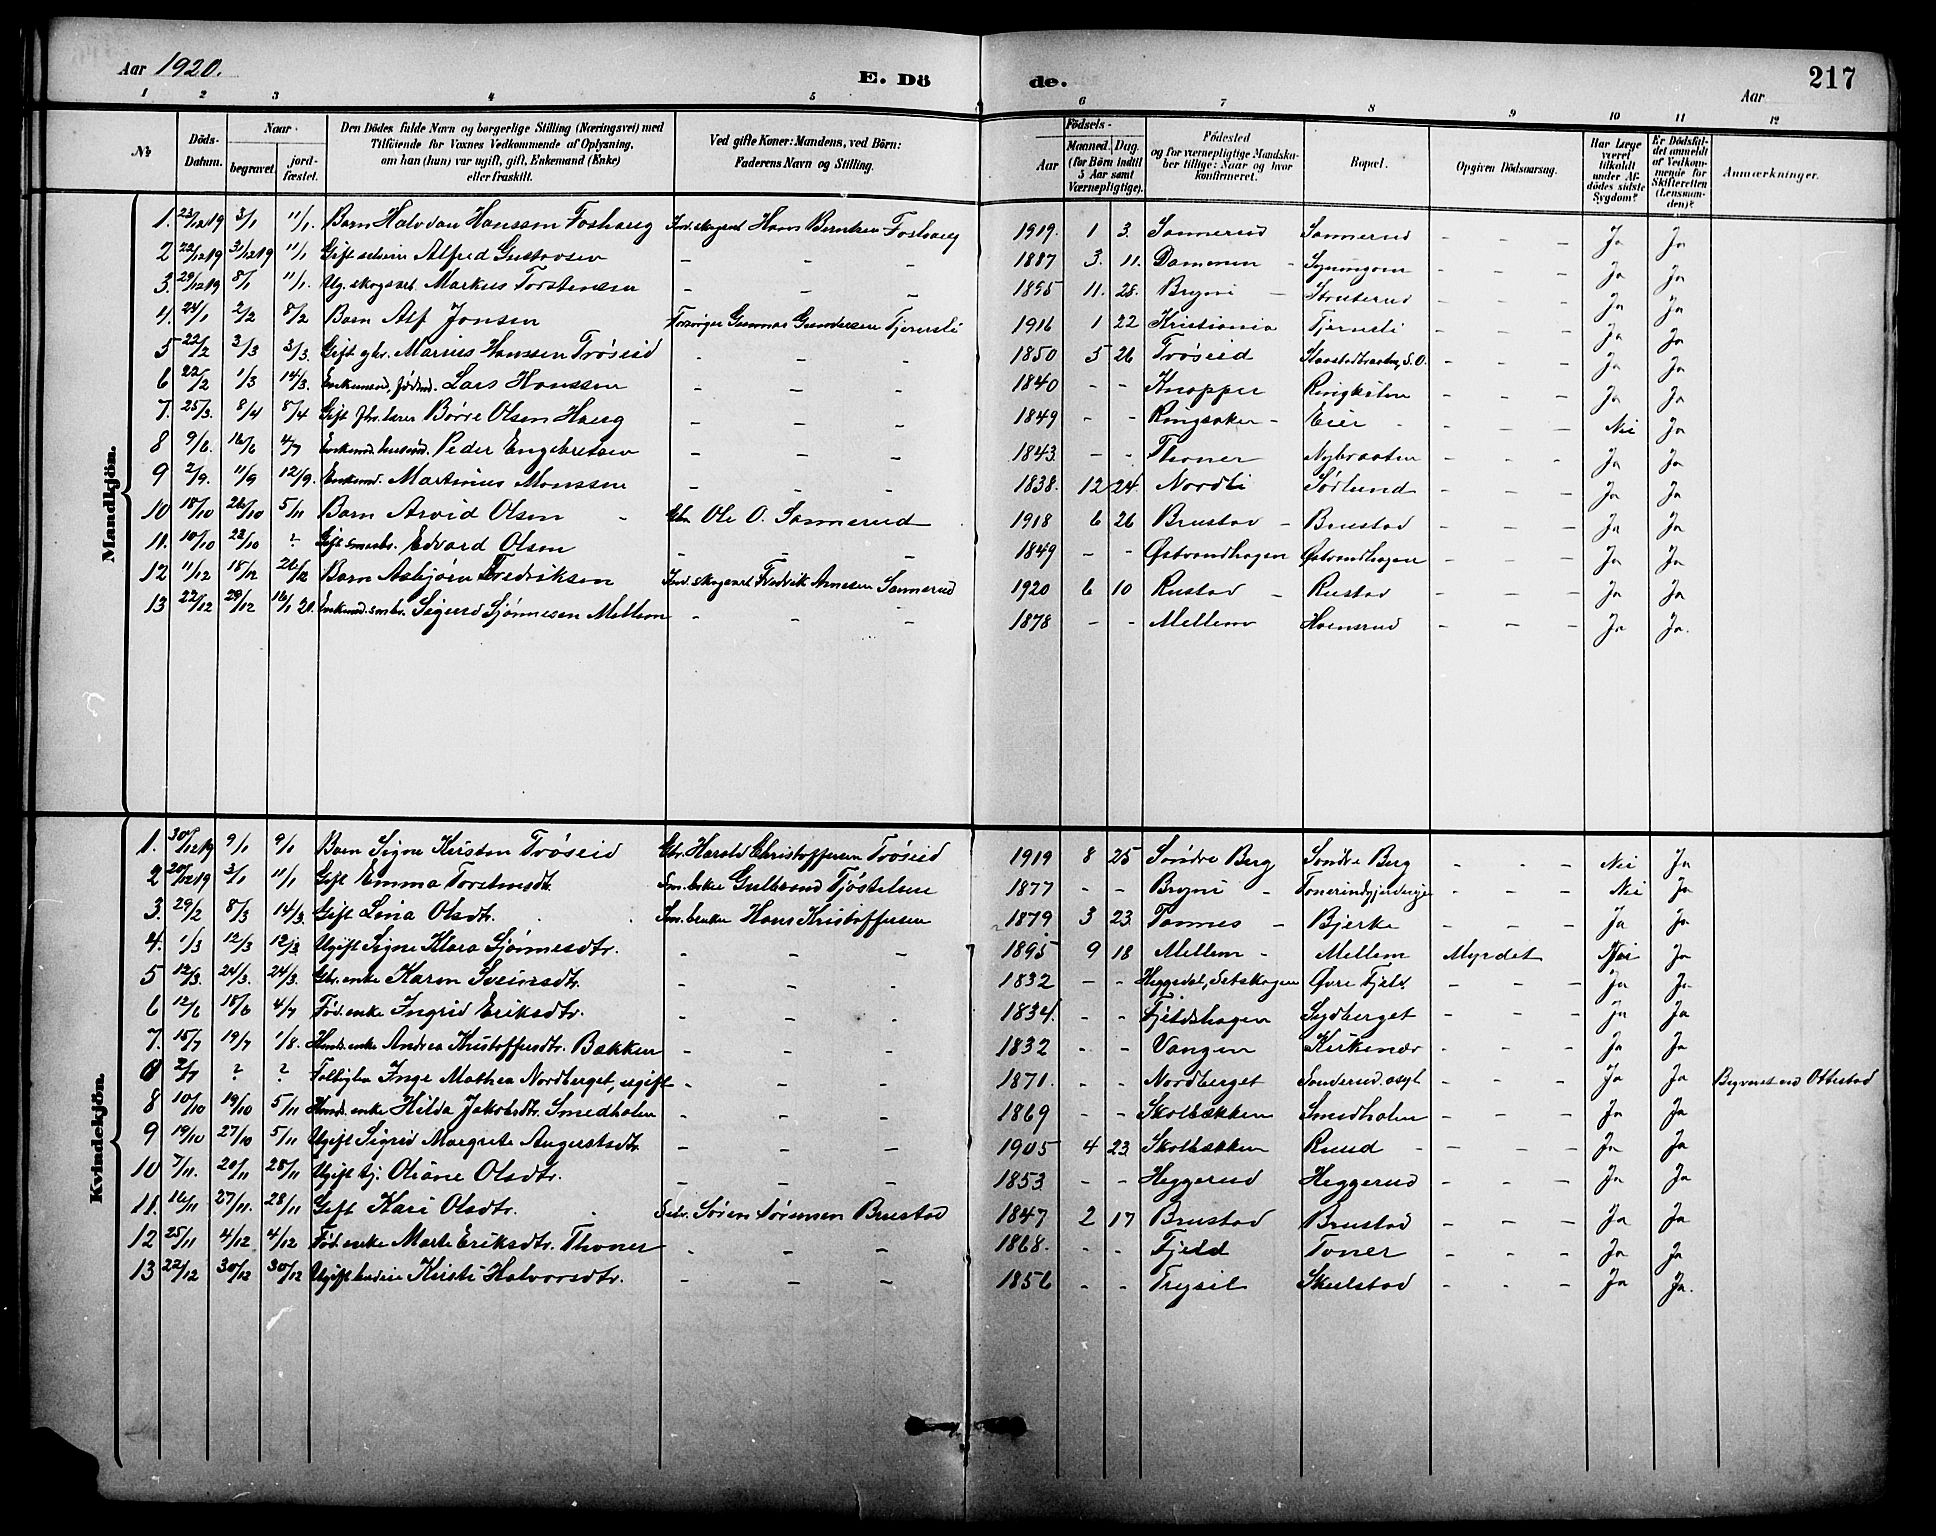 Aar 1920. E. Dö de. Aar 217
1 2 3 4 5 6 7 8 9 10 11 12
№ Döds-Datum. Naar begravet. jord-fæstet. Den Dödes fulde Navn og borgerlige Stilling (Næringsvei) med Tilföiende for Voxnes Vedkommende af Oplysning, om han (hun) var ugift, gift, Enkemand (Enke) eller fraskilt. Ved gifte Koner: Mandens, ved Börn: Faderens Navn og Stilling. Födsels- Aar Maaned. Dag. (for Börn indtil 5 Aar samt Værnepligtige). Födested og for værnepligtige Mandskaber tillige: Naar og hvor konfirmeret. Bopæl. Opgiven Dödsaarsag. Har Læge været tilkaldt under Afdödes sidste Sygdom? Er Dödsfaldet anmeldt af Vedkommende for Skifteretten (Lensmanden)? Anmærkninger.
Mandkjön.
1. 23/12 19 3/1 11/1. Barn Halvdan Hanssen Foshaug Ind. skogsarb. Hans Berntsen Foshaug 1919. 1 3. Sannerud Sannerud - - - Ja Ja
2 22/12 19 31/12 19 11/1 Gift Alfred Gustavsen - - - 1887 3. 11. Dammen - - - - Ja Ja
3. 29/12 19 8/1 11/1. Ug. skogsarb. Markus Torstensen - - - 1895 11. 28. Bryni - Struterud - - - Ja Ja
4. 24/1 2/2 8/2 Barn Alf Jonsen Forsørger Gunnar Gundersen Tjernsli 1916 1 22 Kristiania Tjernsli - - - Ja Ja
5 22/2 3/3 3/3. Gift gbr. Marius Hanssen Trøseid - - - 1850 5 26 Trøseid - - - Ja Ja
6 22/2 1/3 14/3. Enkemand, Lars Hanssen - - - 1840 - - Knapper - - - Ja Ja
7. 25/3. 8/4 8/4 Gift fhv. lærer Børre Olsen Haug - - - 1849 - - Ringsaker - Eier - - - Nei Ja
8 9/6. 16/6 4/7 Enkemd. husmd. Peder Engebretsen - - - 1843. - - Thoner Nybraaten - - - Ja Ja
9 2/9. 11/9 12/9. Enkemd. Martinius Monssen - - - 1838. 12 24. Nordli Sørlund - - - Ja Ja
10 18/10 26/10 5/11 Barn Arvid Olsen - Gbr. Ole O. Sannerud 1918 6 26 Brustad - Brustad - - - Ja Ja
11. 10/10 22/10 ? Gift smaabr. Edvard Olsen - - - 1849 - - Østvandhagen Østvandhagen - - - Ja Ja
12 11/12 18/12 26/12 Barn Asbjørn Fredriksen Ind. skogsarb. Fredrik Arnesen Sannerud 1920 6 10 Rustad - Rustad - - - Ja Ja
13 22/12 29/12 16/1 20. Enkemd. smbr. Sigurd Sjønnesen Mellem - - - 1878 - - Mellem Hoensrud - - - Ja Ja.
Kvindekjön.
1. 30/12 19 9/1 9/1 Barn Signe Kirsten Trøseid Gbr. Harald Christoffersen Trøseid 1919 8 25 Søndre Berg Søndre Berg - - - Nei Ja
2 20/12 19 3/1 11/1 Gift Emma Torstensdt. Smbruker Gulbrand Tjøstelsen 1877 - - Bryni - - - - Nei Ja
3. 29/2 8/3 14/3. Gift Lina Olsdtr. Smbruker Hans Kristoffersen 1879 3 23. Tannes - Bjerke - - - Ja Ja
4. 1/3 12/3 12/3 Ugift Signe Klara Sjønnesdtr. - - - 1895 9 18 Mellem - Mellem Myrdet - - Nei Ja
5 12/3. 24/3. 24/3. Gbr. enke Karen Sveinsdtr. - - - 1832 - - Heggedal, Setskogen Øvre Fjeld. - - - Ja Ja
6 12/6 18/6 4/7 Fød. enke Ingrid Eriksdtr. - - - 1834. - - Fjeldshagen Sydberget - - - Ja Ja
7. 15/7 19/7 1/8. Husm. enke Andrea Kristoffersdtr. Bakken - - - 1832 - - Vangen Kirkenær - - - Ja Ja
2/7 ? ? Inga Mathea Nordberget, ugift - - - 1871. - - Nordberget Sandersud. asyl - - - Ja Ja Begravet ved Ottestad
8 10/10 19/10 5/11 Husm. enke Hilda Jakobsdtr. Smedholen - - - 1869 - - Skolbækken Smedholen - - - Ja Ja
9 19/10 27/10 5/11 Ugift Sigrid Margrete Augustsdtr. - - - 1905 4 23. Skolbækken Ruud - - - Ja Ja
10 7/11. 20/11 28/11 Ugift tj. Oliane Olsdtr. - - - 1853 - - Heggerud Heggerud - - - Ja Ja
11. 16/11 27/11. 28/11 Gift Kari Olsdtr. Selv. Søren Sørensen Brustad 1847 2 17 Brustad Brustad - - - Ja Ja
12 25/11 4/12 4/12 Fød. enke Marte Eriksdtr. Thoner - - - 1868. - - Fjeld Toner - - - Ja Ja
13 22/12 30/12 30/12 Ugift Kirsti Halvorsdtr. - - - 1856 - - Trysil Skulstad - - - Ja Ja.